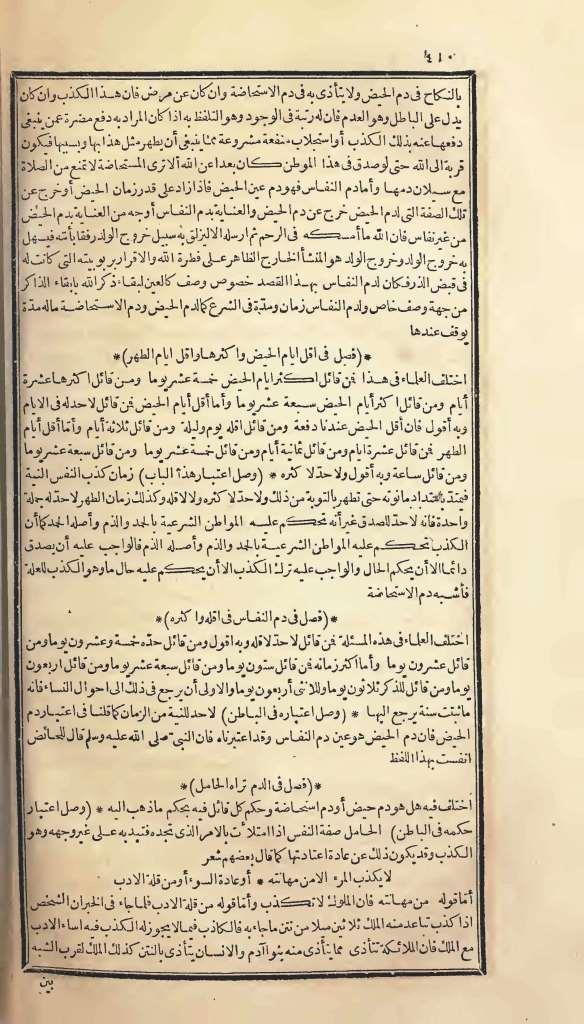 ٤١٠
بالنكاح فى دم الحيض ولا يتأذى به فى دم الاستحاضة وان كان عن مرض فان هذا الكذب وان كان
يدل على الباطل وهو العدم فان له رتبة فى الوجود وهو التلفظ به اذا كان المراد به دفع مضرة عمن ينبغى
دفعها عنه بذلك الكذب أو استجلاب منفعة مشروعة مما ينبغى أن يظهر مثل هذا بها وبسببها فيكون
قربة الى الله حتى لو صدق فى هذا الموطن كان بعدا عن الله ألا ترى المستحاضة لا تمنع من الصلاة
مع سيلان دمها وأما دم النفاس فهو دم عين الحيض فاذا زاد على قدر زمان الحيض أو خرج عن
تلك الصفة التى لدم الحيض خرج عن دم الحيض والعناية بدم النفاس أوجه من العناية بدم الحيض
من غير نفاس فان الله ما أمسكه فى الرحم ثم ارسله الا ليزلق به سبيل خروج الولد رفقا بأمته فيسهل
به خروج الولد وخروج الولد هو المنشأ الخارج الظاهر على فطرة الله والاقرار بربوبيته التى كانت له
فى قبض الذر فكان لدم النفاس بهذا القصد خصوص وصف كالعين لبقاء ذكر الله بابقاء الذاكر
من جهة وصف خاص ولدم النفاس زمان ومدة فى الشرع كما لدم الحيض ودم الاستحاضة ماله مدة
يوقف عندها
*(فصل فى اقل ايام الحيض واكثرها واقل ايام الطهر)*
اختلف العلماء فى هذا فمن قائل اكثر ايام الحيض خمسة عشر يوما ومن قائل اكثرها عشرة
أيام ومن قائل اكثر أيام الحيض سبعة عشر يوما وأما أقل أيام الحيض فمن قائل لا حد له فى الايام
وبه أقول فان أقل الحيض عندنا دفعة ومن قائل اقله يوم وليلة ومن قائل ثلاثة أيام وأما أقل أيام
الطهر فمن قائل عشرة ايام ومن قائل ثمانية أيام ومن قائل خمسة عشر يوما ومن قائل سبعة عشر يوما
ومن قائل ساعة وبه أقول ولا حد لا كثره *(وصل اعتبار هذا الباب) زمان كذب النفس النية
فيمتد بامتداد ما نوته حتى تطهر بالتوبة من ذلك ولا حد لا كثره ولا لاقله وكذلك زمان الطهر لا حد له جملة
واحدة فانه لا حد للصدق غير أنه تحكم عليه المواطن الشرعية بالحمد والذم وأصله الحمد كما أن
الكذب تحكم عليه المواطن الشرعية بالحمد والذم وأصله الذم فالواجب عليه أن يصدق
دائما الا أن يحكم الحال والواجب عليه ترك الكذب الا أن يحكم عليه حال ما وهو الكذب للعلة
فأشبه دم الاستحاضة
*(فصل فى دم النفاس فى اقله واكثره)*
اختلف العلماء فى هذه المسئلة فمن قائل لا حد لاقله وبه اقول ومن قائل حده خمسة وعشرون يوما ومن
قائل عشرون يوما وأما اكثر زمانه فمن قائل ستون يوما ومن قائل سبعة عشر يوما ومن قائل اربعون
يوما ومن قائل للذكر ثلاثون يوما وللانثى أربعون يوما والاولى أن يرجع فى ذلك الى احوال النساء فانه
ما ثبتت سنة يرجع اليها *(وصل اعتباره فى الباطن) لا حد للنية من الزمان كما قلنا فى اعتبار دم
الحيض فان دم الحيض هو عين دم النفاس وقد اعتبرناه فان النبى صلى الله عليه وسلم قال للحائض
انفست بهذا اللفظ
*(فصل فى الدم تراه الحامل)*
اختلف فيه هل هو دم حيض أو دم استحاضة وحكم كل قائل فيه بحكم ما ذهب اليه *(وصل اعتبار
حكمه فى الباطن) الحامل صفة النفس اذا امتلأت بالامر الذى تجده فتبديه على غير وجهه وهو
الكذب وقد يكون ذلك عن عادة اعتادتها كما قال بعضهم شعر
لا يكذب المرء الا من مهانته * أو عادة السوء أو من قلة الادب
أما قوله من مهانته فان الملوك لا تكذب وأما قوله من قلة الادب فلما جاء فى الخبر ان الشخص
اذا كذب تباعد منه الملك ثلاثين ميلا من نتن ما جاء به فالكاذب فيما لا يجوز له الكذب فيه اساء الادب
مع الملك فان الملائكة تتأذى مما يتأذى منه بنوا آدم والانسان يتأذى بالنتن كذلك الملك لقرب الشبه
بين